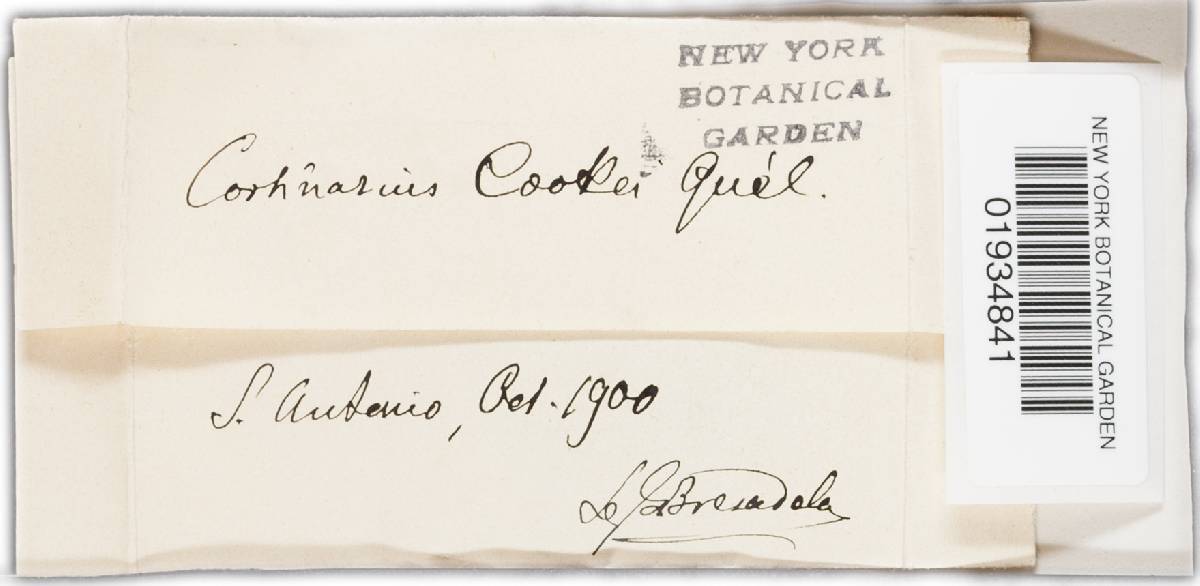 NEW YORK
BOTANICAL
GARDEN
Cortinarius Cookei Quél.
S. Antonio, Oct. 1900
Bresadola
NEW YORK BOTANICAL GARDEN
01934841